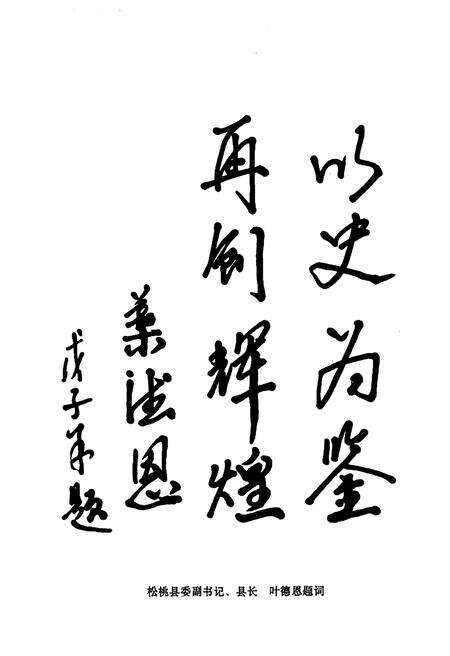 以史为鉴
再创辉煌
葉德恩
戊子年题
松桃县委副书记、县长 叶德恩题词